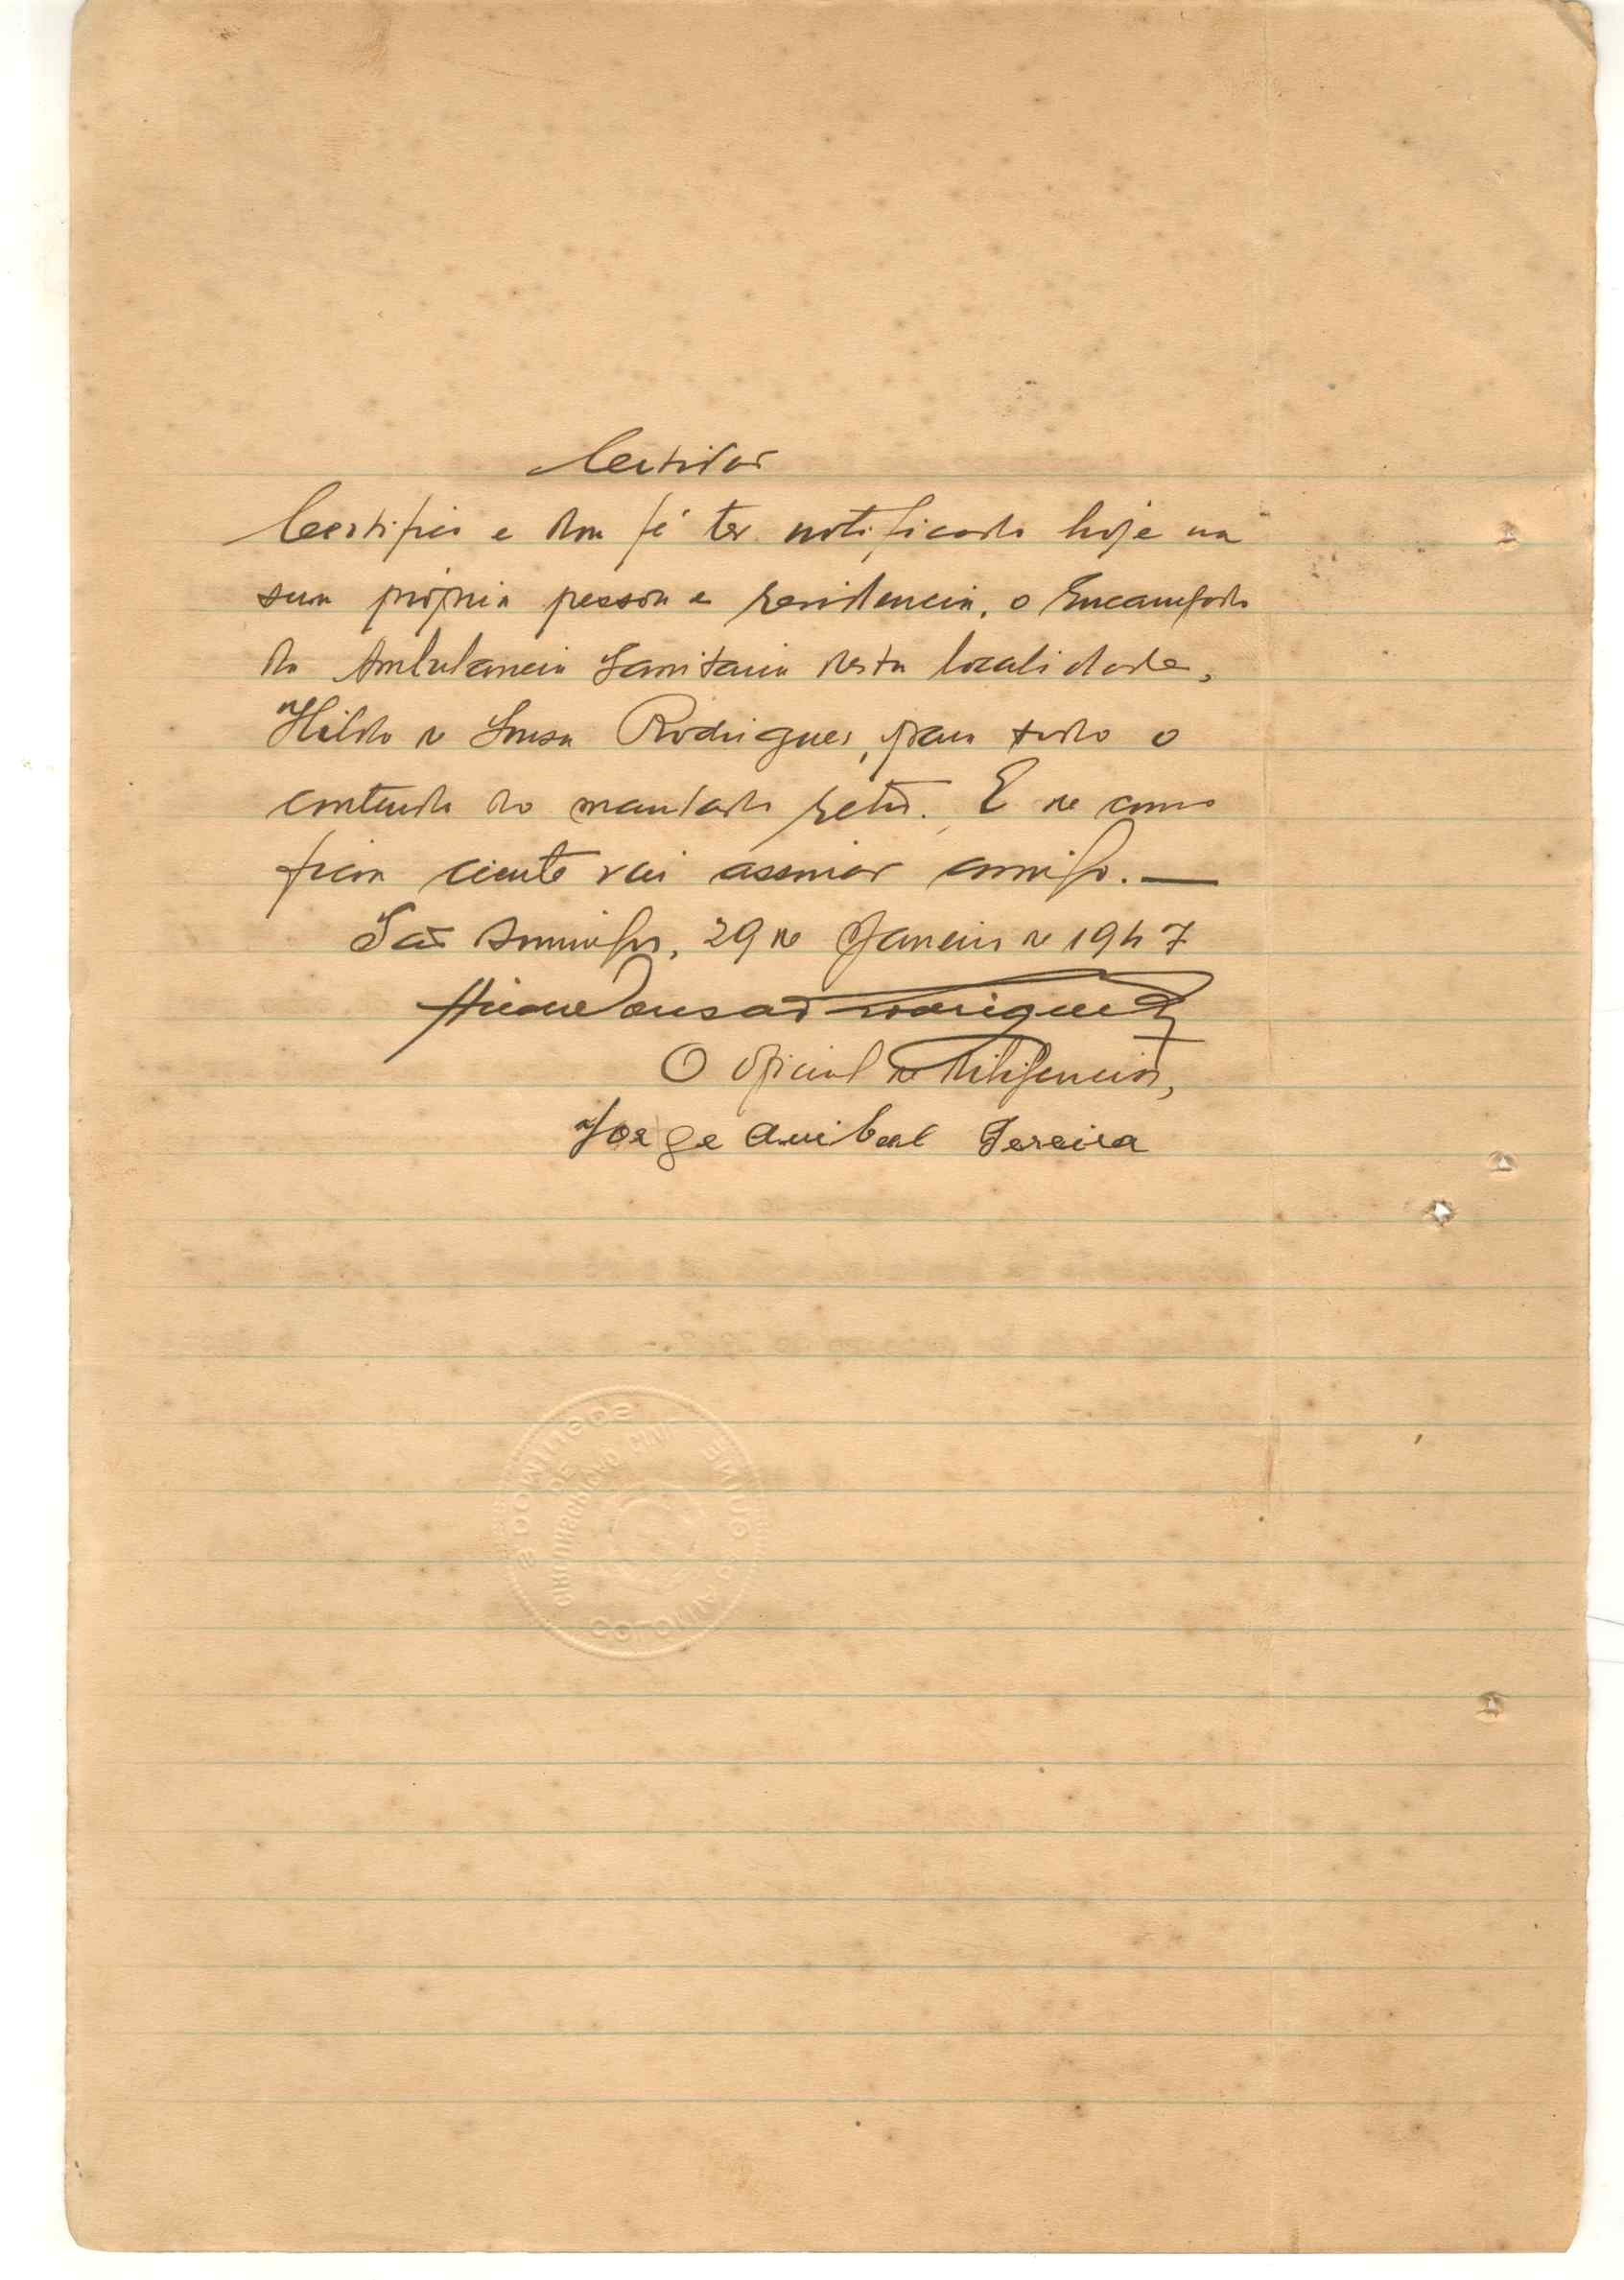 Certidão
Certifico e dou fé ter notificado hoje na
sua própria pessoa e residencia, o Encarregado
da Ambulancia Sanitaria desta localidade,
Hildo de Sousa Rodrigues, para todo o
conteudo do mandado retro. E de como
ficou ciente vai assinar comigo.—
São Domingos, 29 de Janeiro de 1947
O oficial de diligencias,
Jorge Anibal Pereira
S DOMINGOS
DE
COLONIA DA GUINE